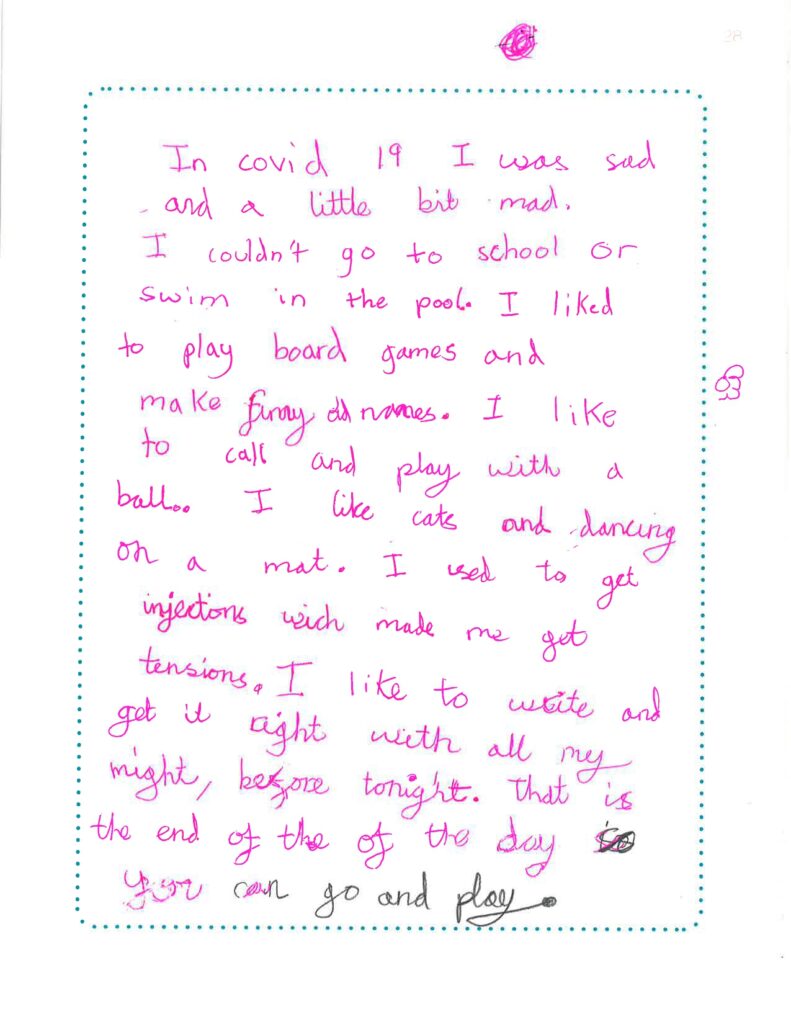 38
In covid 19 I was sad
and a little bit mad.
I couldn't go to school or
swim in the pool. I liked
to play board games and
make funny names. I like
to call and play with a
ball.. I like cats and dancing
on a mat. I used to get
injections wich made me get
tensions. I like to write and
get it right with all my
might, before tonight. That is
the end of the of the day so
you can go and play.